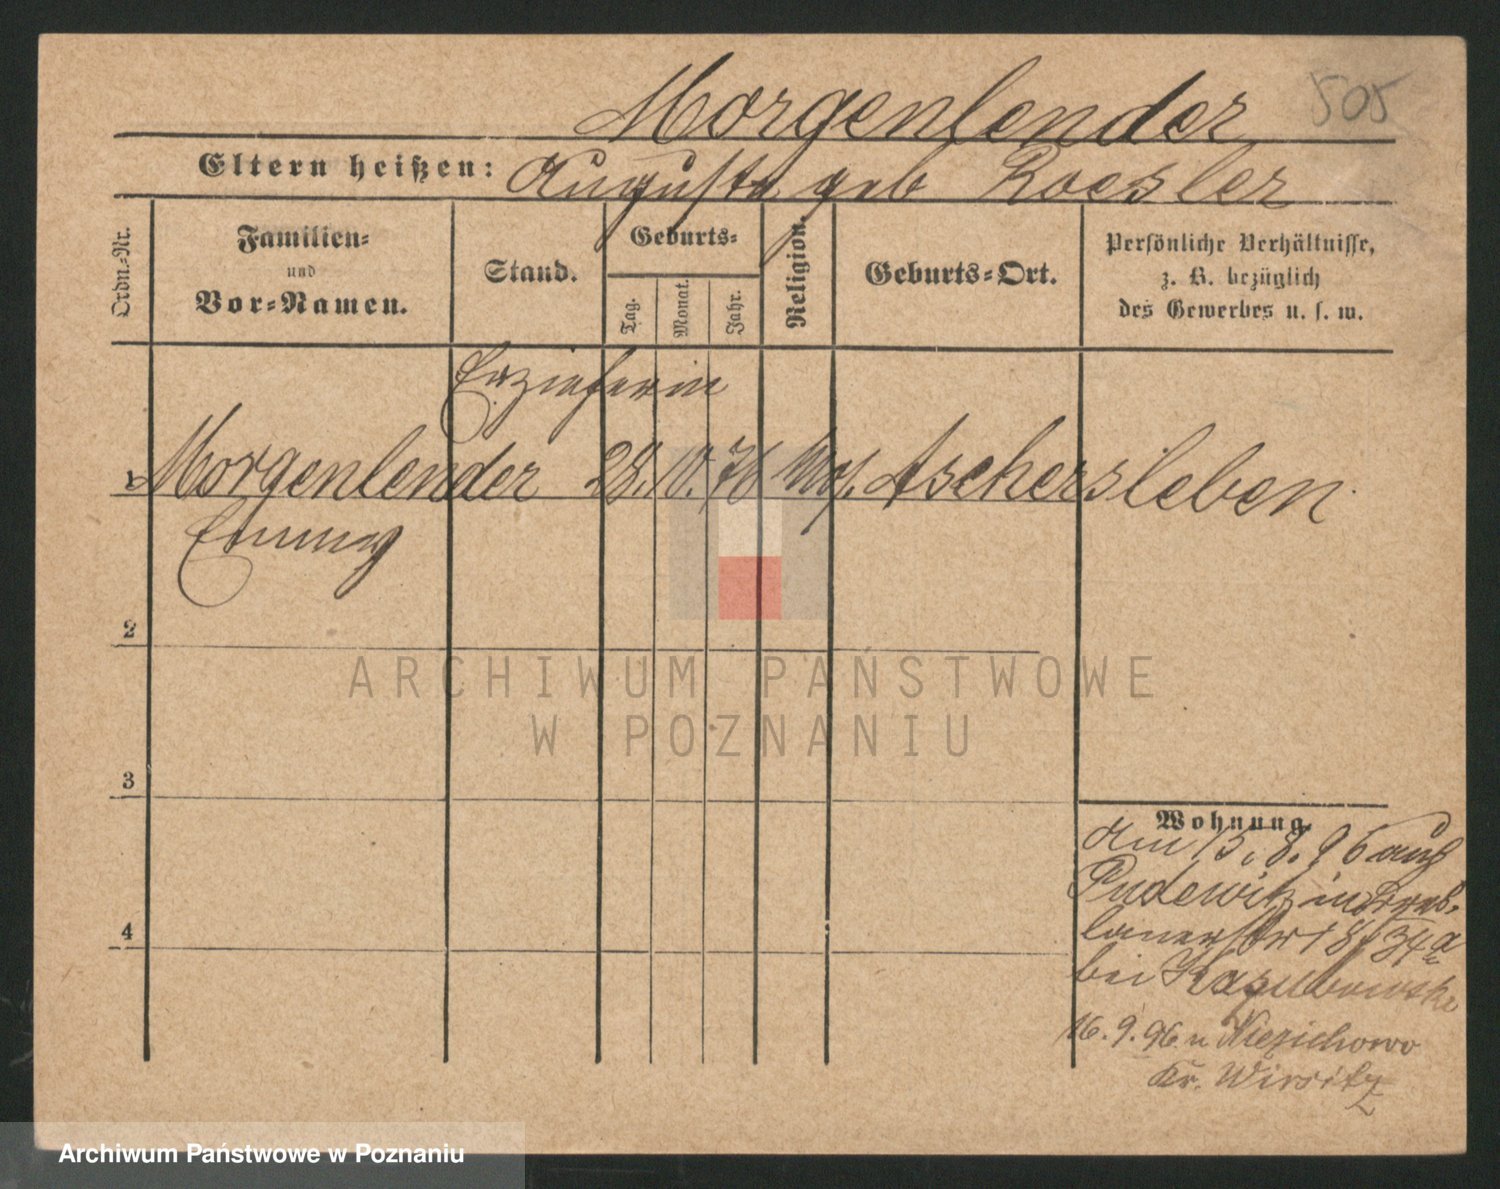 Morgenlender
505
Eltern heißen: Auguste geb Roesler
Ordn.-Nr.
Familien-
und
Vor-Namen.
Stand.
Geburts-
Tag.
Monat.
Jahr.
Religion.
Geburts-Ort.
Persönliche Verhältnisse,
z. B. bezüglich
des Gewerbes u. s. w.
Erzieherin
1 Morgenlender 28. 10. 76 Mos. Aschersleben
Emma
2
3
4
Wohnung.
Am 15. 8. 96 aus
Pudewitz in Bres-
lauerstr 18/34a
bei
16. 9. 96 n Niezichowo
Kr. Wirsitz
ARCHIWUM PAŃSTWOWE
W POZNANIU
Archiwum Państwowe w Poznaniu